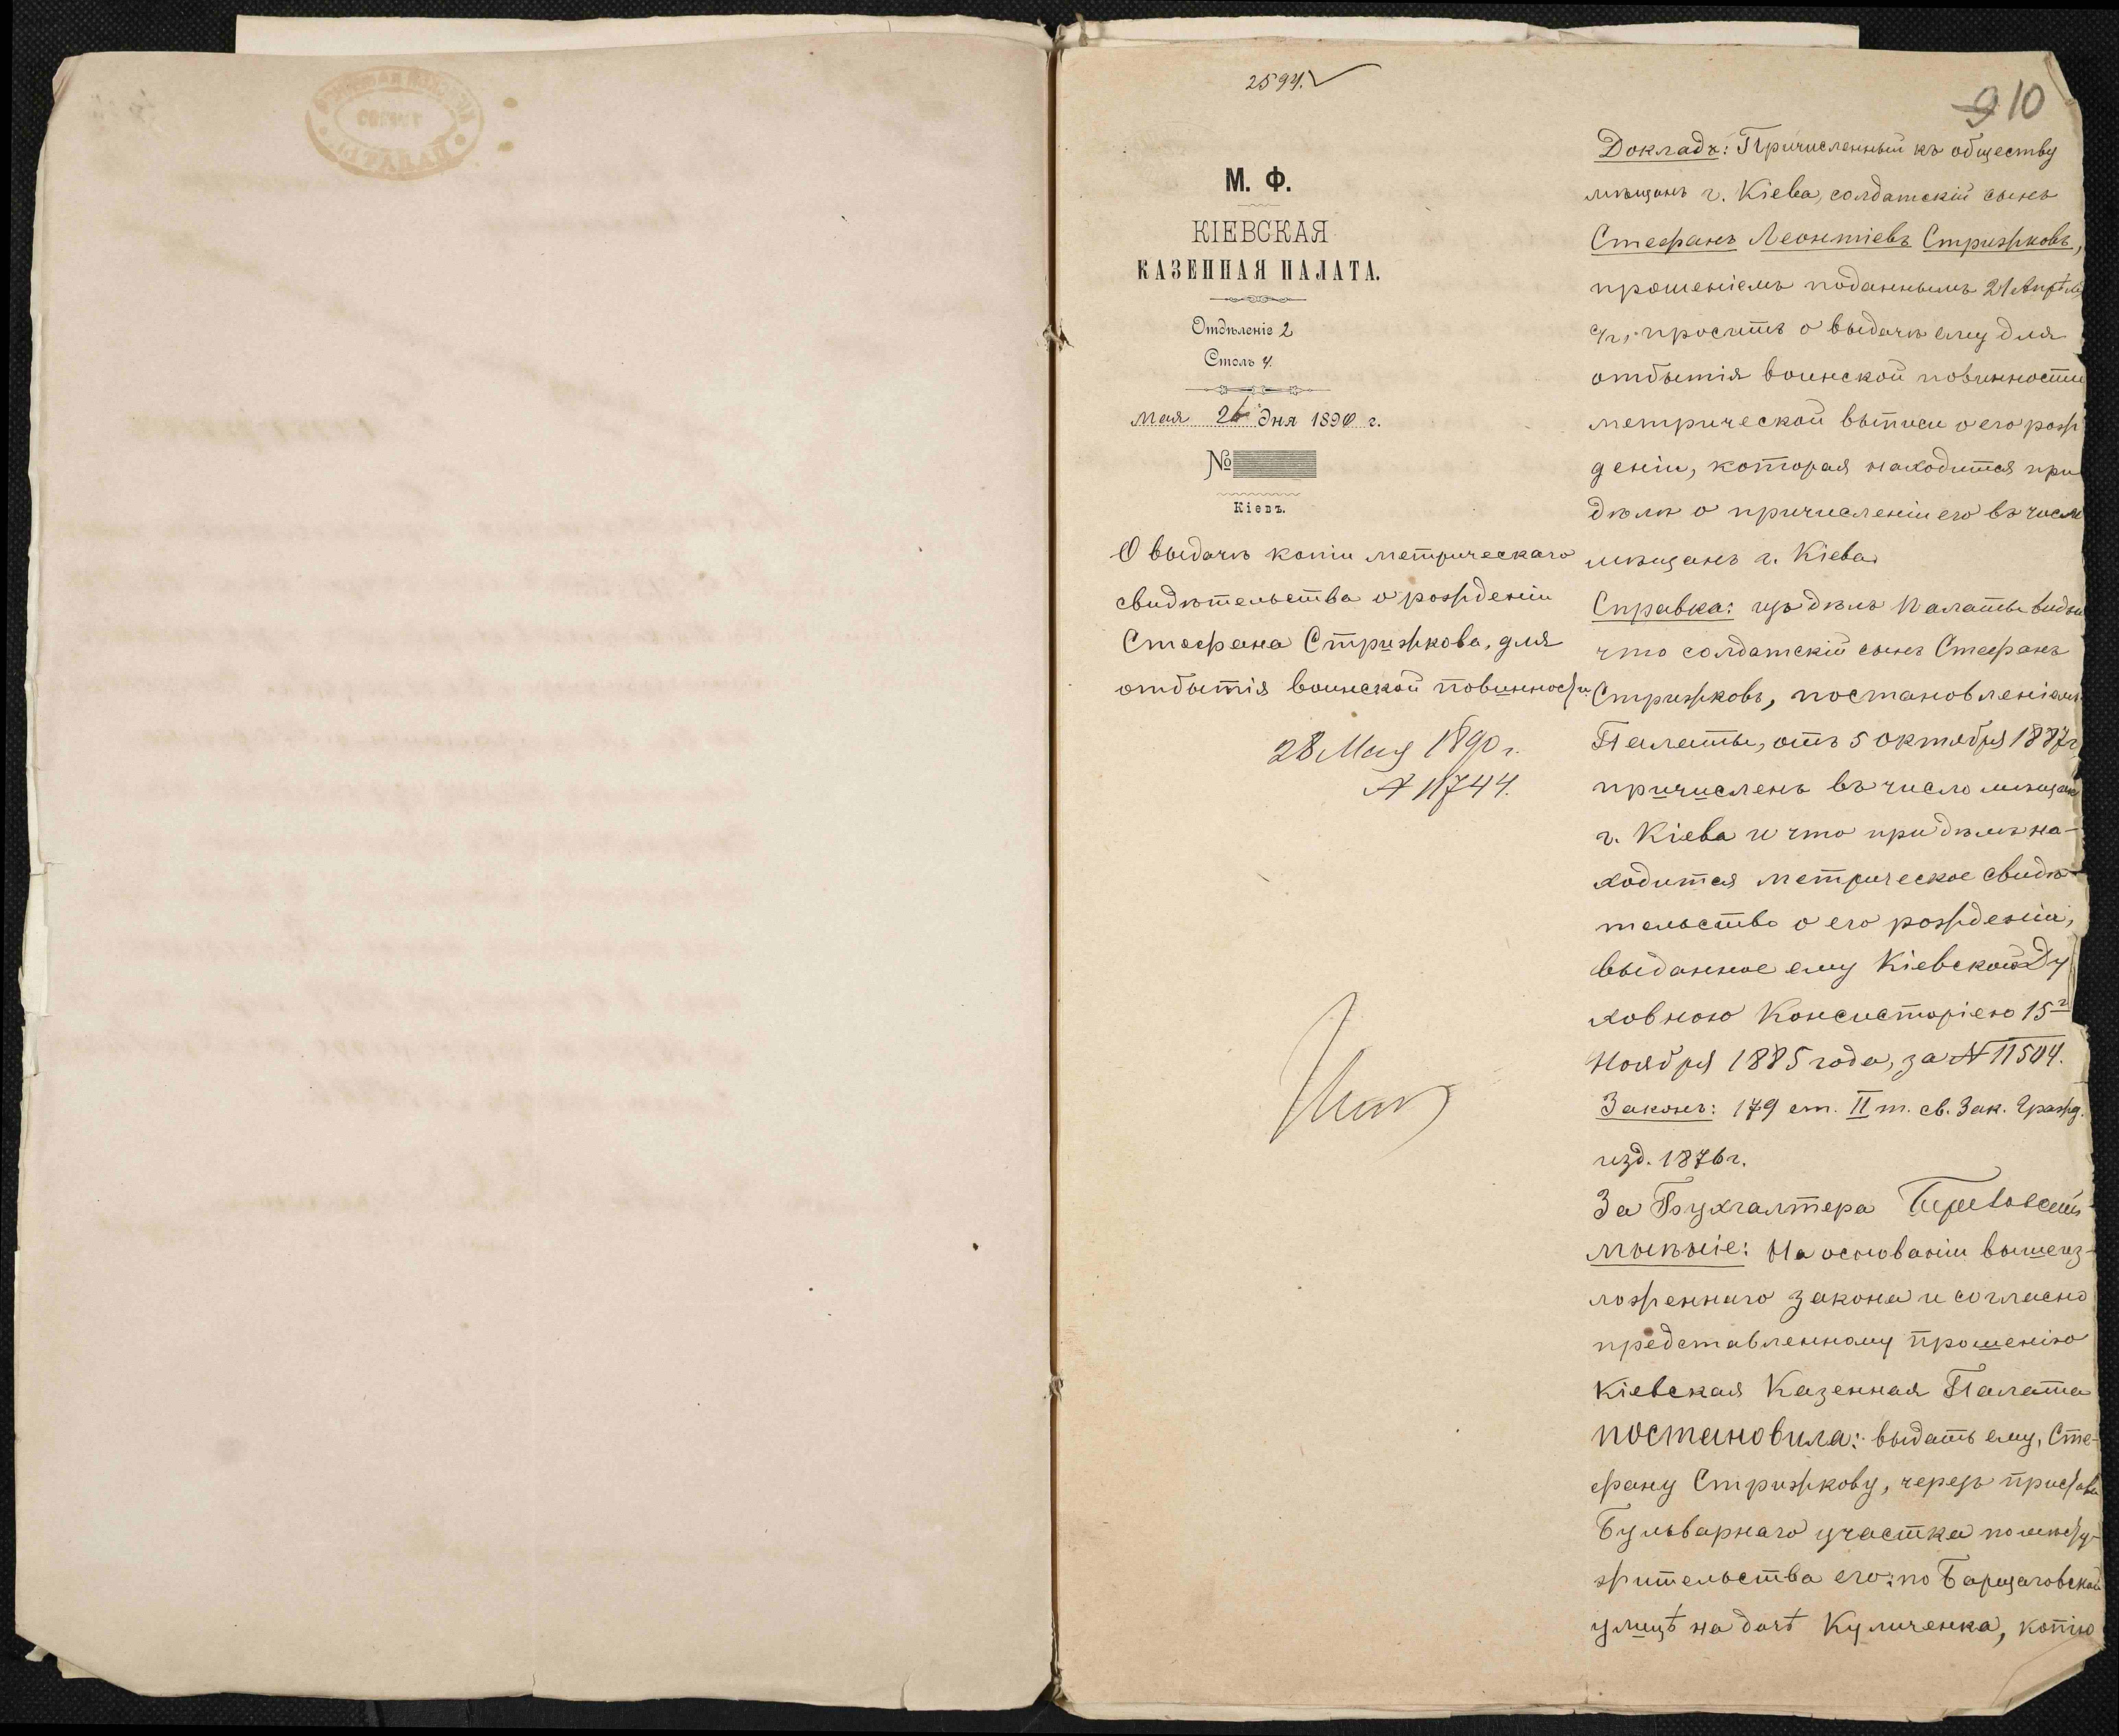 2594.
9 10
М. Ф.
КІЕВСКАЯ
КАЗЕННАЯ ПАЛАТА.
Отдѣленіе 2
Столъ 4.
Мая 26 дня 1890 г.
№
Кіевъ.
О выдачѣ копіи метрическаго
свидѣтельства о рожденіи
Стефана Стрижкова, для
отбытія воинской повинности.
28 Мая 1890 г.
№ 11744.
Докладъ: Причисленный къ обществу
мѣщанъ г. Кіева, солдатскій сынъ
Стефанъ Леонтіевъ Стрижковъ,
прошеніемъ поданнымъ 21 Апрѣля
с/г, проситъ о выдачѣ ему для
отбытія воинской повинности
метрической выписи о его рож
деніи, которая находится при
дѣлѣ о причисленіи его въ число
мѣщанъ г. Кіева.
Справка: изъ дѣлъ Палаты видно
что солдатскій сынъ Стефанъ
Стрижковъ, постановленіемъ
Палаты, отъ 5 октября 1887 г
причисленъ въ число мѣщанъ
г. Кіева и что при дѣлѣ на-
ходится метрическое свидѣ-
тельство о его рожденіи,
выданное ему Кіевской Ду
ховною Консисторіею 15г
Ноября 1885 года, за № 11504.
Законъ: 179 ст. II т. св. Зак. Гражд.
изд. 1876 г.
За Бухгалтера
Мнѣніе: На основаніи вышеиз-
ложеннаго закона и согласно
представленному прошенію
Кіевская Казенная Палата
постановила: выдать ему, Сте-
фану Стрижкову, черезъ пристава
Бульварнаго участка по мѣсту
жительства его: по Борщаговской
улицѣ на дачѣ Куличенка, копію